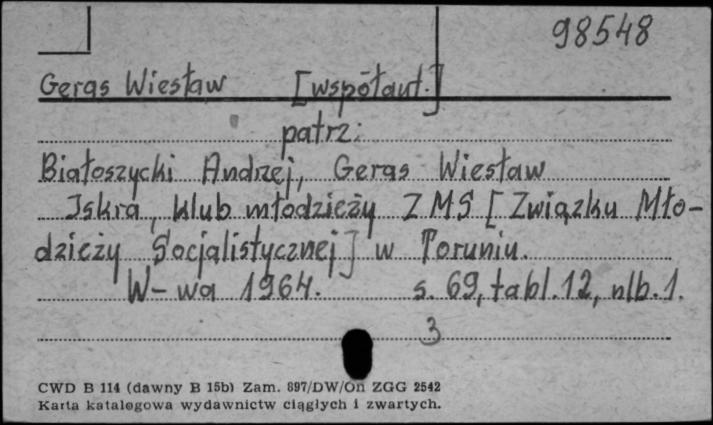 98548
Gerąs Wiesław [współaut.]
patrz:
Białoszycki Andrzej, Gerąs Wiesław
Iskra, klub młodzieży ZMS [Związku Mło-
dzieży Socjalistycznej] w Toruniu.
W-wa 1964. s. 69, tabl. 12, nlb. 1.
3
CWD B 114 (dawny B 15b) Zam. 897/DW/On ZGG 2542
Karta katalogowa wydawnictw ciągłych i zwartych.